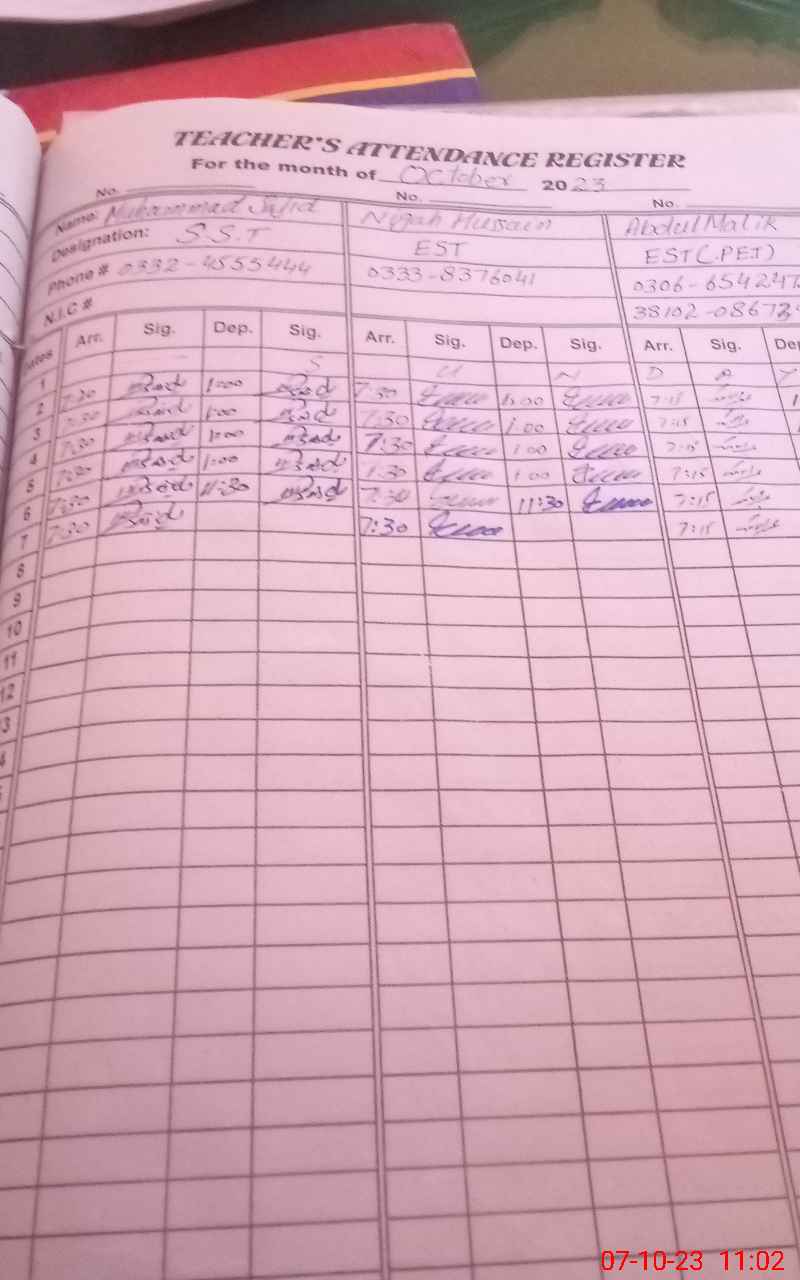 TEACHER'S ATTENDANCE REGISTER
For the month of October 2023
No. No. No.
Name: Muhammad Sajid Hussain Abdul Malik
Designation: S.S.T EST EST(PET)
Phone # 0332-4555444 0333-8376041 0306-654247
N.I.C # 38102-0867
Dates Arr. Sig. Dep. Sig. Arr. Sig. Dep. Sig. Arr. Sig. Dep
1 S U N D A Y
2 7:30 1:00 7:30 1:00 7:15
3 7:30 1:00 7:30 1:00 7:15
4 7:30 1:00 7:30 1:00 7:15
5 7:30 1:00 7:30 1:00 7:15
6 7:30 11:30 7:30 11:30 7:15
7 7:30 7:30 7:15
8
9
10
11
12
3
4
07-10-23 11:02